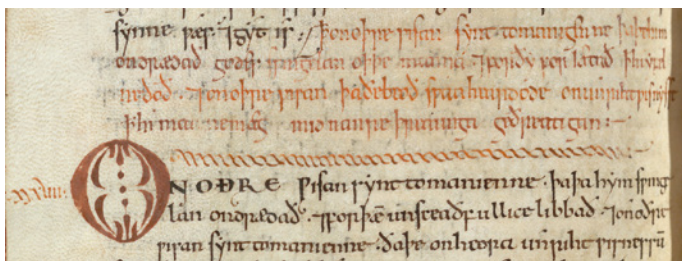 synne 7 gyt is: Þ on oþre wisan synt to manigenne þa þe him
ondrædað godes swinglan oþþe manna 7 for ðy forlætað þ hi yfel
ne dað. 7 on oþre wisan þa ðe beoð swa ahyrdode on unrihtwisnysse
þ hi man ne mæg mid nanre þreaunga geðreatigan:
ON OÐRE wisan synt to manienne. þa þa hym swing
lan ondrædað. 7 for þæ unsceaðfullice libbað. 7 on oðre
wisan synt to manienne. ða þe on heora unriht